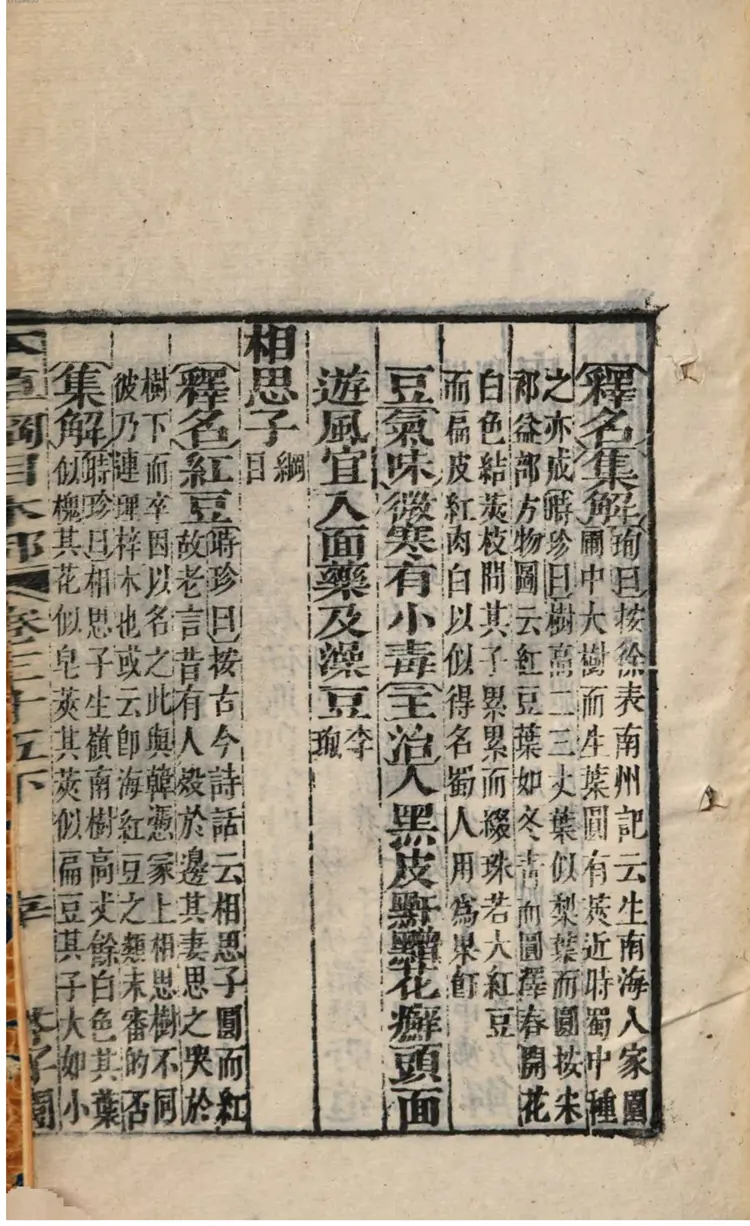 釋名集解珣曰按徐表南州記云生南海人家園
圃中大樹而生葉圓有莢近時蜀中種
之亦成時珍曰樹高二三丈葉似梨葉而圓按宋
祁益部方物圖云紅豆葉如冬青而圓澤春開花
白色結莢枝間其子累累而綴珠若大紅豆
而扁皮紅肉白以似得名蜀人用爲果飣
豆氣味微寒有小毒主治人黑皮䵟䵳花癬頭面
遊風宜入面藥及澡豆李珣
相思子綱目
釋名紅豆時珍曰按古今詩話云相思子圓而紅
故老言昔有人歿於邊其妻思之哭於
樹下而卒因以名之此與韓憑冢上相思樹不同
彼乃連理梓木也或云卽海紅豆之類未審的否
集解時珍曰相思子生嶺南樹高丈餘白色其葉
似槐其花似皂莢其莢似扁豆其子大如小
本草綱目木部 卷三十五下 芥子園